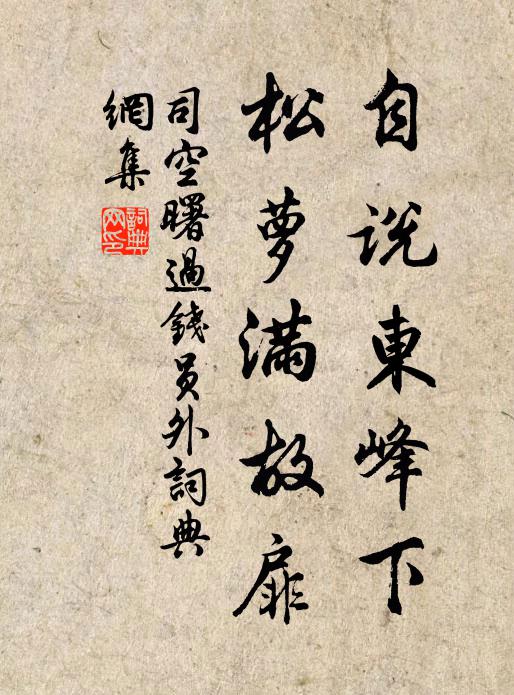 自說東峰下
松夢滿故扉
司空曙過錢員外詞典
網集
詞典
网印